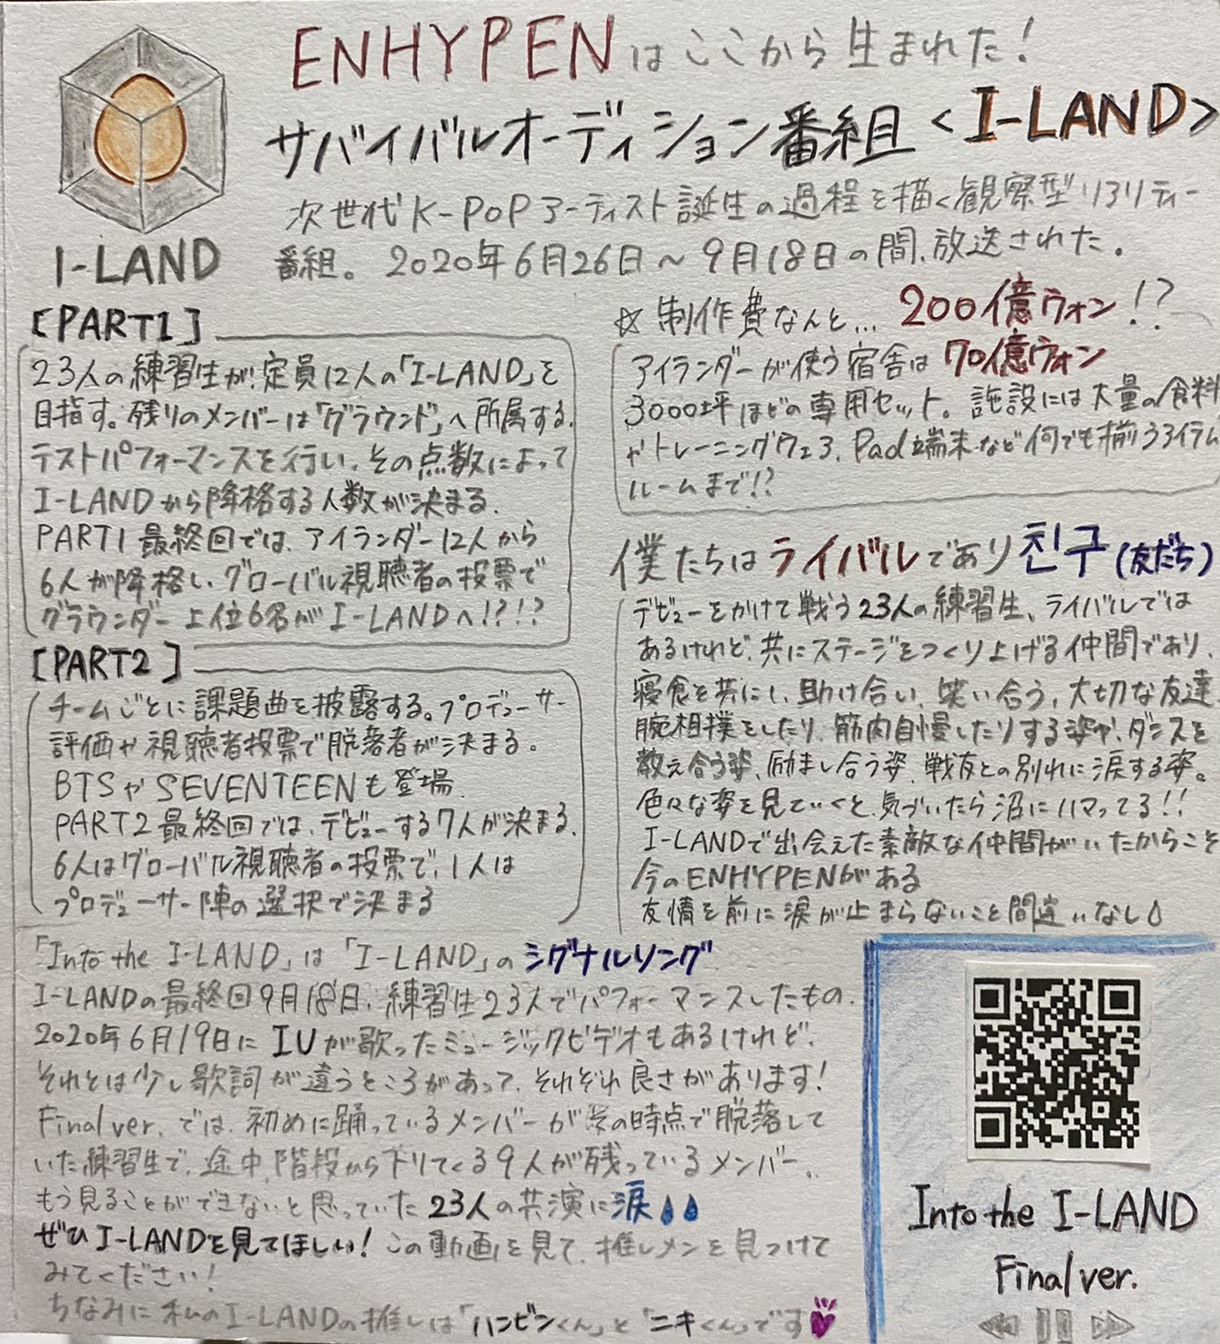 ENHYPENはここから生まれた！
サバイバルオーディション番組<I-LAND>
次世代K-POPアーティスト誕生の過程を描く観察型リアリティー
番組。2020年6月26日～9月18日の間、放送された。
I-LAND
[PART1]
23人の練習生が、定員12人の「I-LAND」を
目指す。残りのメンバーは「グラウンド」へ所属する。
テストパフォーマンスを行い、その点数によって
I-LANDから降格する人数が決まる。
PART1最終回では、アイランダー12人から
6人が降格し、グローバル視聴者の投票で
グラウンダー上位6名がI-LANDへ!?!?
[PART2]
チームごとに課題曲を披露する。プロデューサー
評価や視聴者投票で脱落者が決まる。
BTSやSEVENTEENも登場。
PART2最終回では、デビューする7人が決まる。
6人はグローバル視聴者の投票で、1人は
プロデューサー陣の選択で決まる
☆制作費なんと... 200億ウォン!?
アイランダーが使う宿舎は70億ウォン
3000坪ほどの専用セット。施設には大量の食料
やトレーニングウェア、Pad端末など何でも揃うアイテム
ルームまで!?
僕たちはライバルであり친구(友だち)
デビューをかけて戦う23人の練習生、ライバルでは
あるけれど、共にステージをつくり上げる仲間であり、
寝食を共にし、助け合い、笑い合う、大切な友達
腕相撲をしたり、筋肉自慢したりする姿や、ダンスを
教え合う姿、励まし合う姿、戦友との別れに涙する姿。
色々な姿を見ていくと、気づいたら沼にハマってる!!
I-LANDで出会えた素敵な仲間がいたからこそ
今のENHYPENがある
友情を前に涙が止まらないこと間違いなし
「Into the I-LAND」は「I-LAND」のシグナルソング
I-LANDの最終回9月18日、練習生23人でパフォーマンスしたもの。
2020年6月19日にIUが歌ったミュージックビデオもあるけれど、
それとは少し歌詞が違うところがあって、それぞれ良さがあります！
Final ver. では、初めに踊っているメンバーがその時点で脱落して
いた練習生で、途中、階段から下りてくる9人が残っているメンバー。
もう見ることができないと思っていた23人の共演に涙
ぜひI-LANDを見てほしい！この動画を見て、推しメンを見つけて
みてください！
ちなみに私のI-LANDの推しは「ハンビンくん」と「ニキくん」です
Into the I-LAND
Final ver.